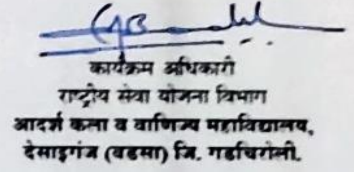 कार्यक्रम अधिकारी
राष्ट्रीय सेवा योजना विभाग
आदर्श कला व वाणिज्य महाविद्यालय,
देसाईगंज (वडसा) जि. गडचिरोली.